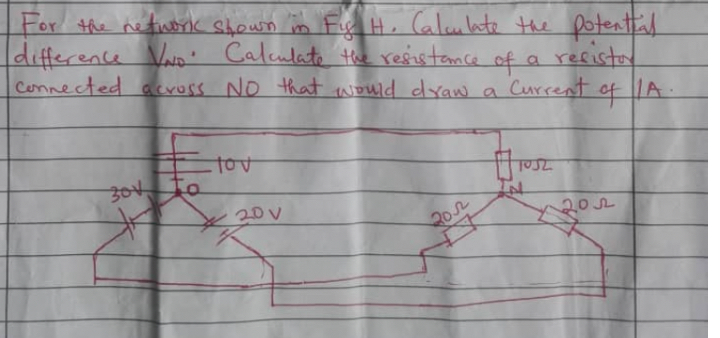 For the network shown in Fig H. Calculate the potential
difference VNO. Calculate the resistance of a resistor
connected across NO that would draw a current of 1A.
10V
10Ω
30V
O
N
20V
20Ω
20Ω